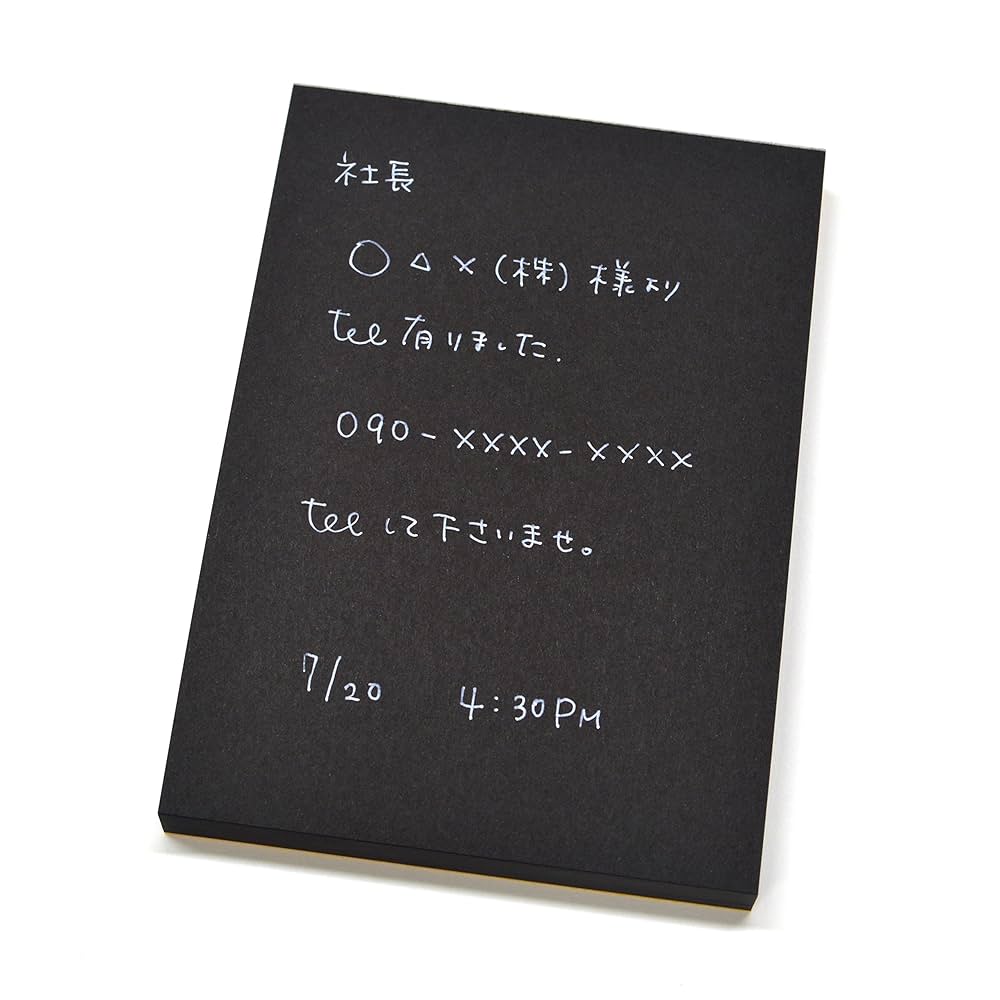 社長
○△×(株)様より
tel有りました.
090-××××-××××
telして下さいませ。
7/20 4:30PM